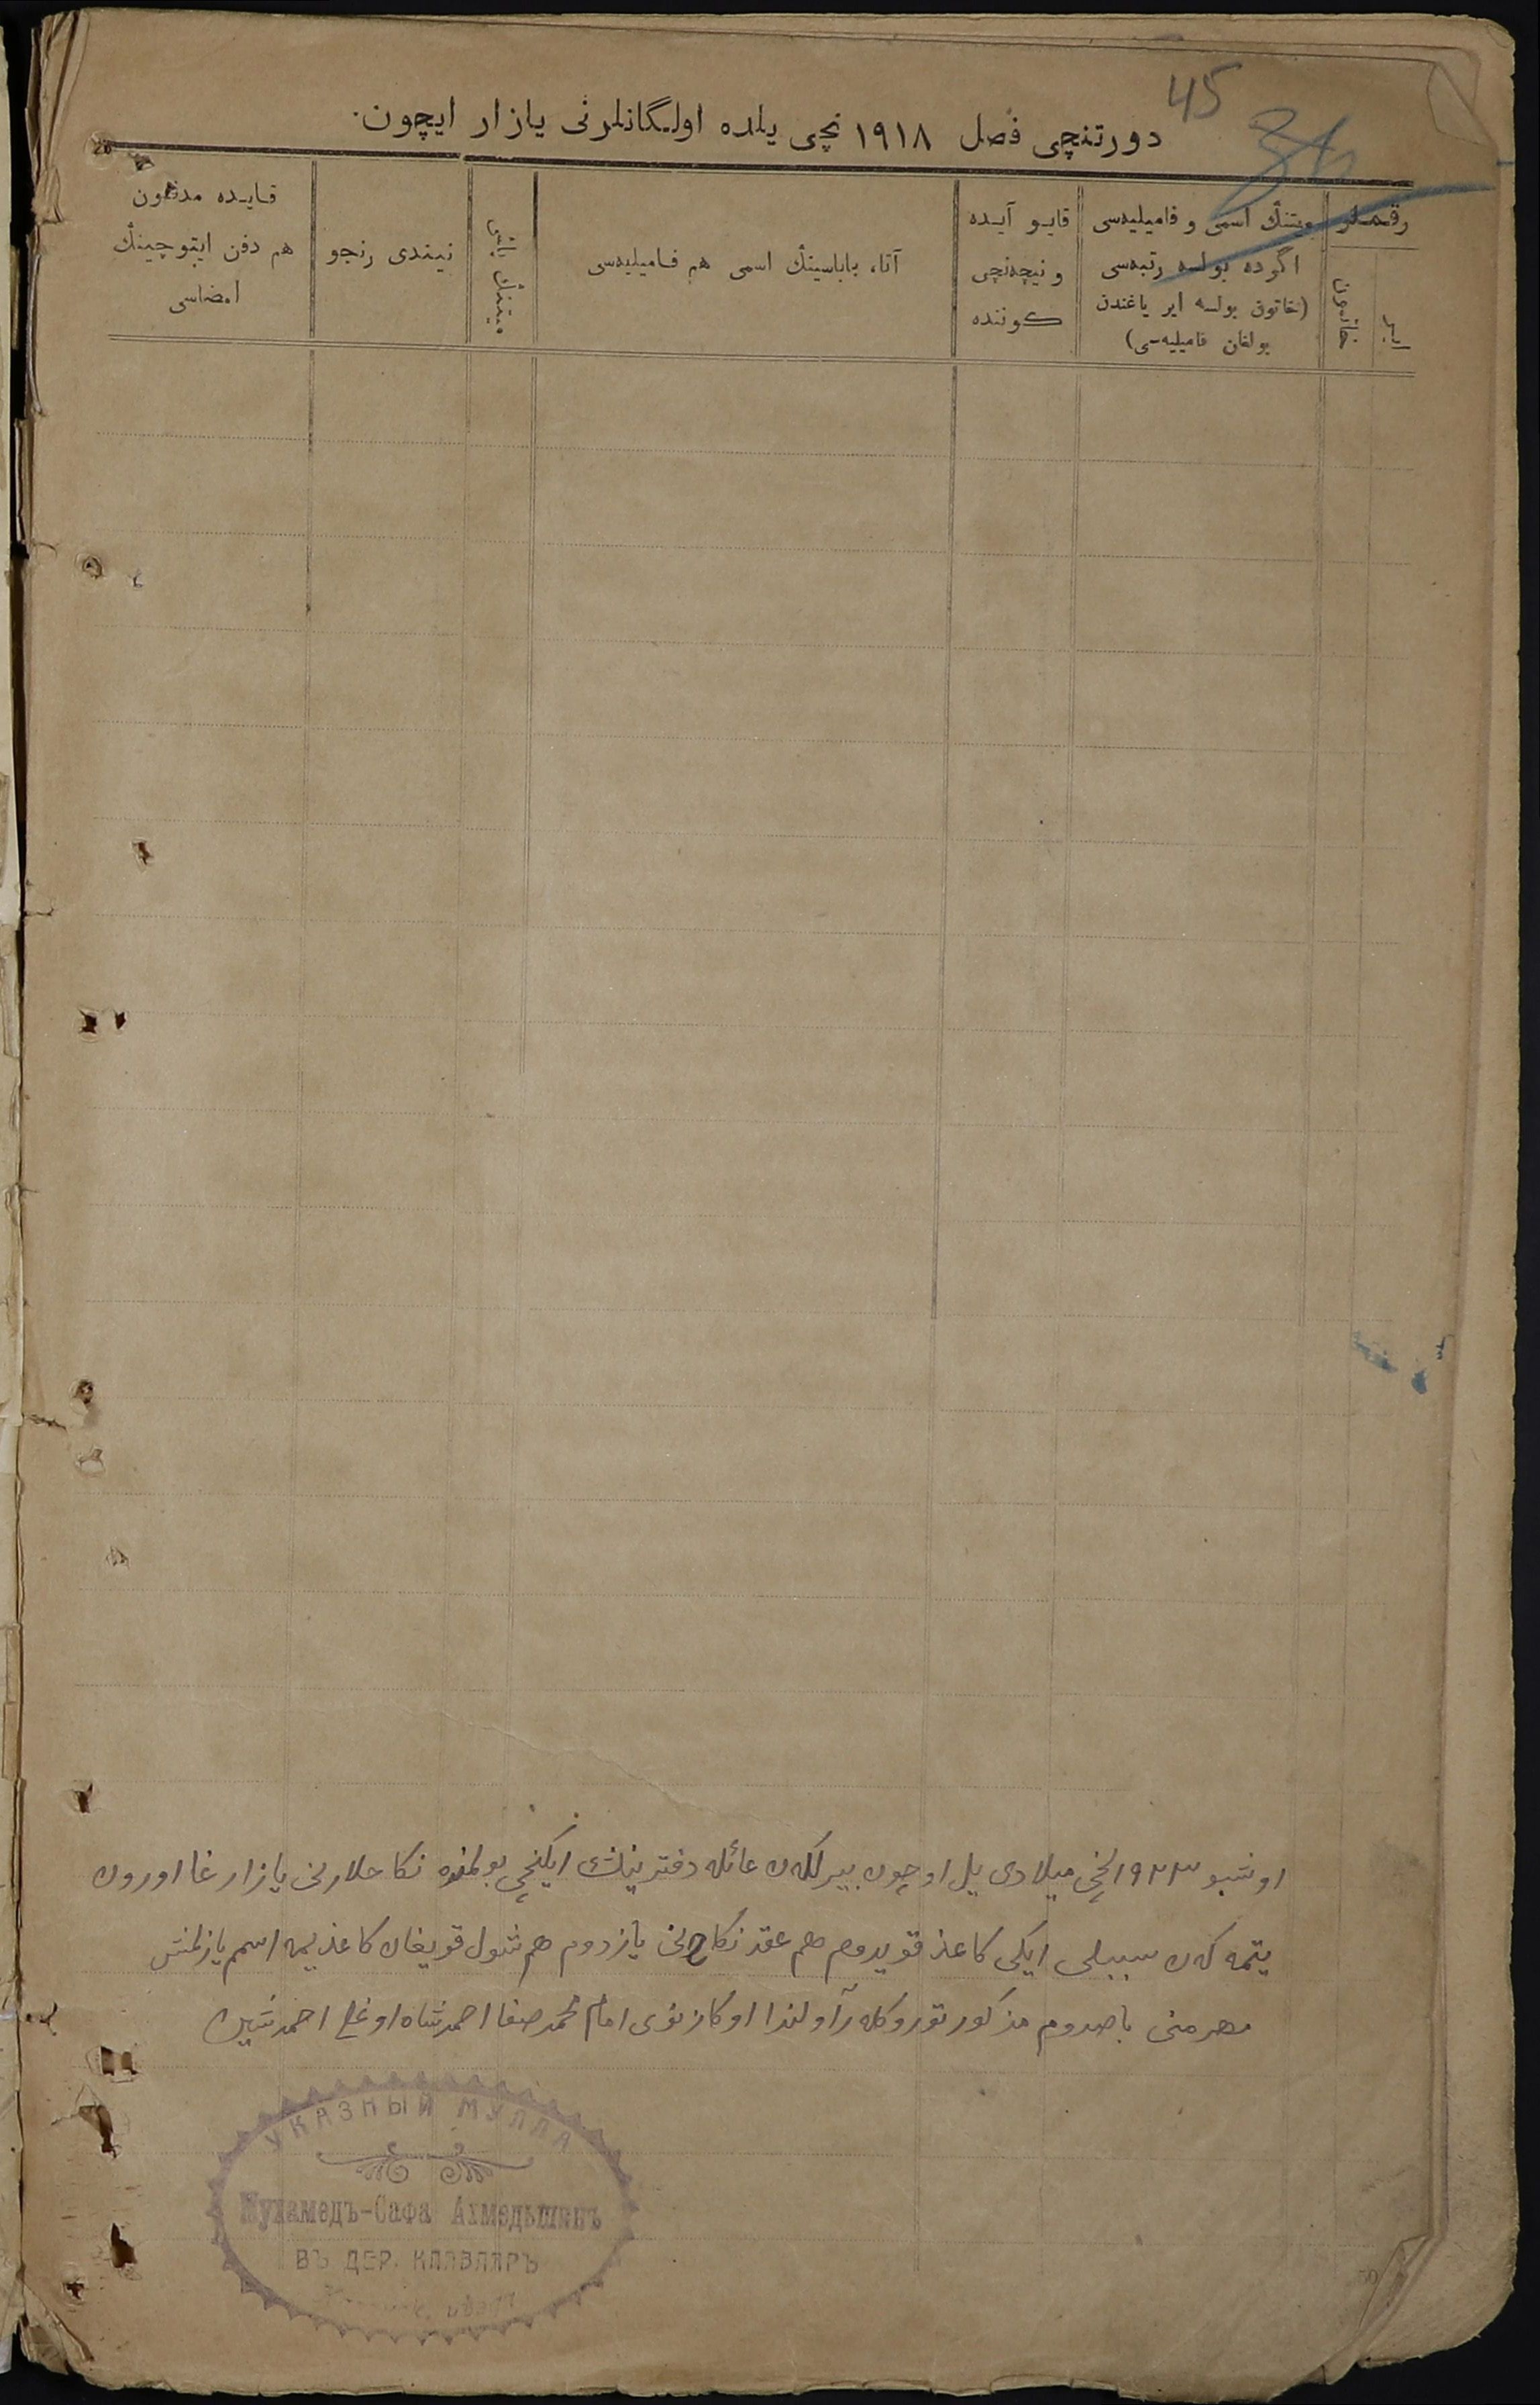 45
دورتنچی فصل ۱۹۱۸ نچی یلده اولگانلرنی یازار ایچون.
رقملر
ایر
خاتون
میتنڭ اسمی و فامیلیه‌سی
اگرده بولسه رتبه‌سی
(خاتون بولسه ایر یاغندن
بولغان فامیلیه‌سی)
قایو آیده
و نیچه‌نچی
کوننده
آتا، باباسینڭ اسمی هم فامیلیه‌سی
میتنڭ یاشی
نیندی رنجو
قایده مدفون
هم دفن ایتوچینڭ
امضاسی
اوشبو ۱۹۲۳ نچی میلادی یل اوچون بیرلگه‌ن عائله دفترینڭ ایکنچی بولمنده نکاحلارنی یازارغا اورون
یتمه‌گه‌ن سببلی ایکی کاغذ قویدوم هم عقد نکاحنی یازدوم هم شول قویغان کاغذیمه اسم یازلمش
مهرمنی باصدوم مذکور آولندا اوکازنوی امام محمد صفا احمدشاه اوغلی احمدشین
УКАЗНЫЙ МУЛЛА
Мухамедъ-Сафа Ахмедышинъ
ВЪ ДЕР.
50